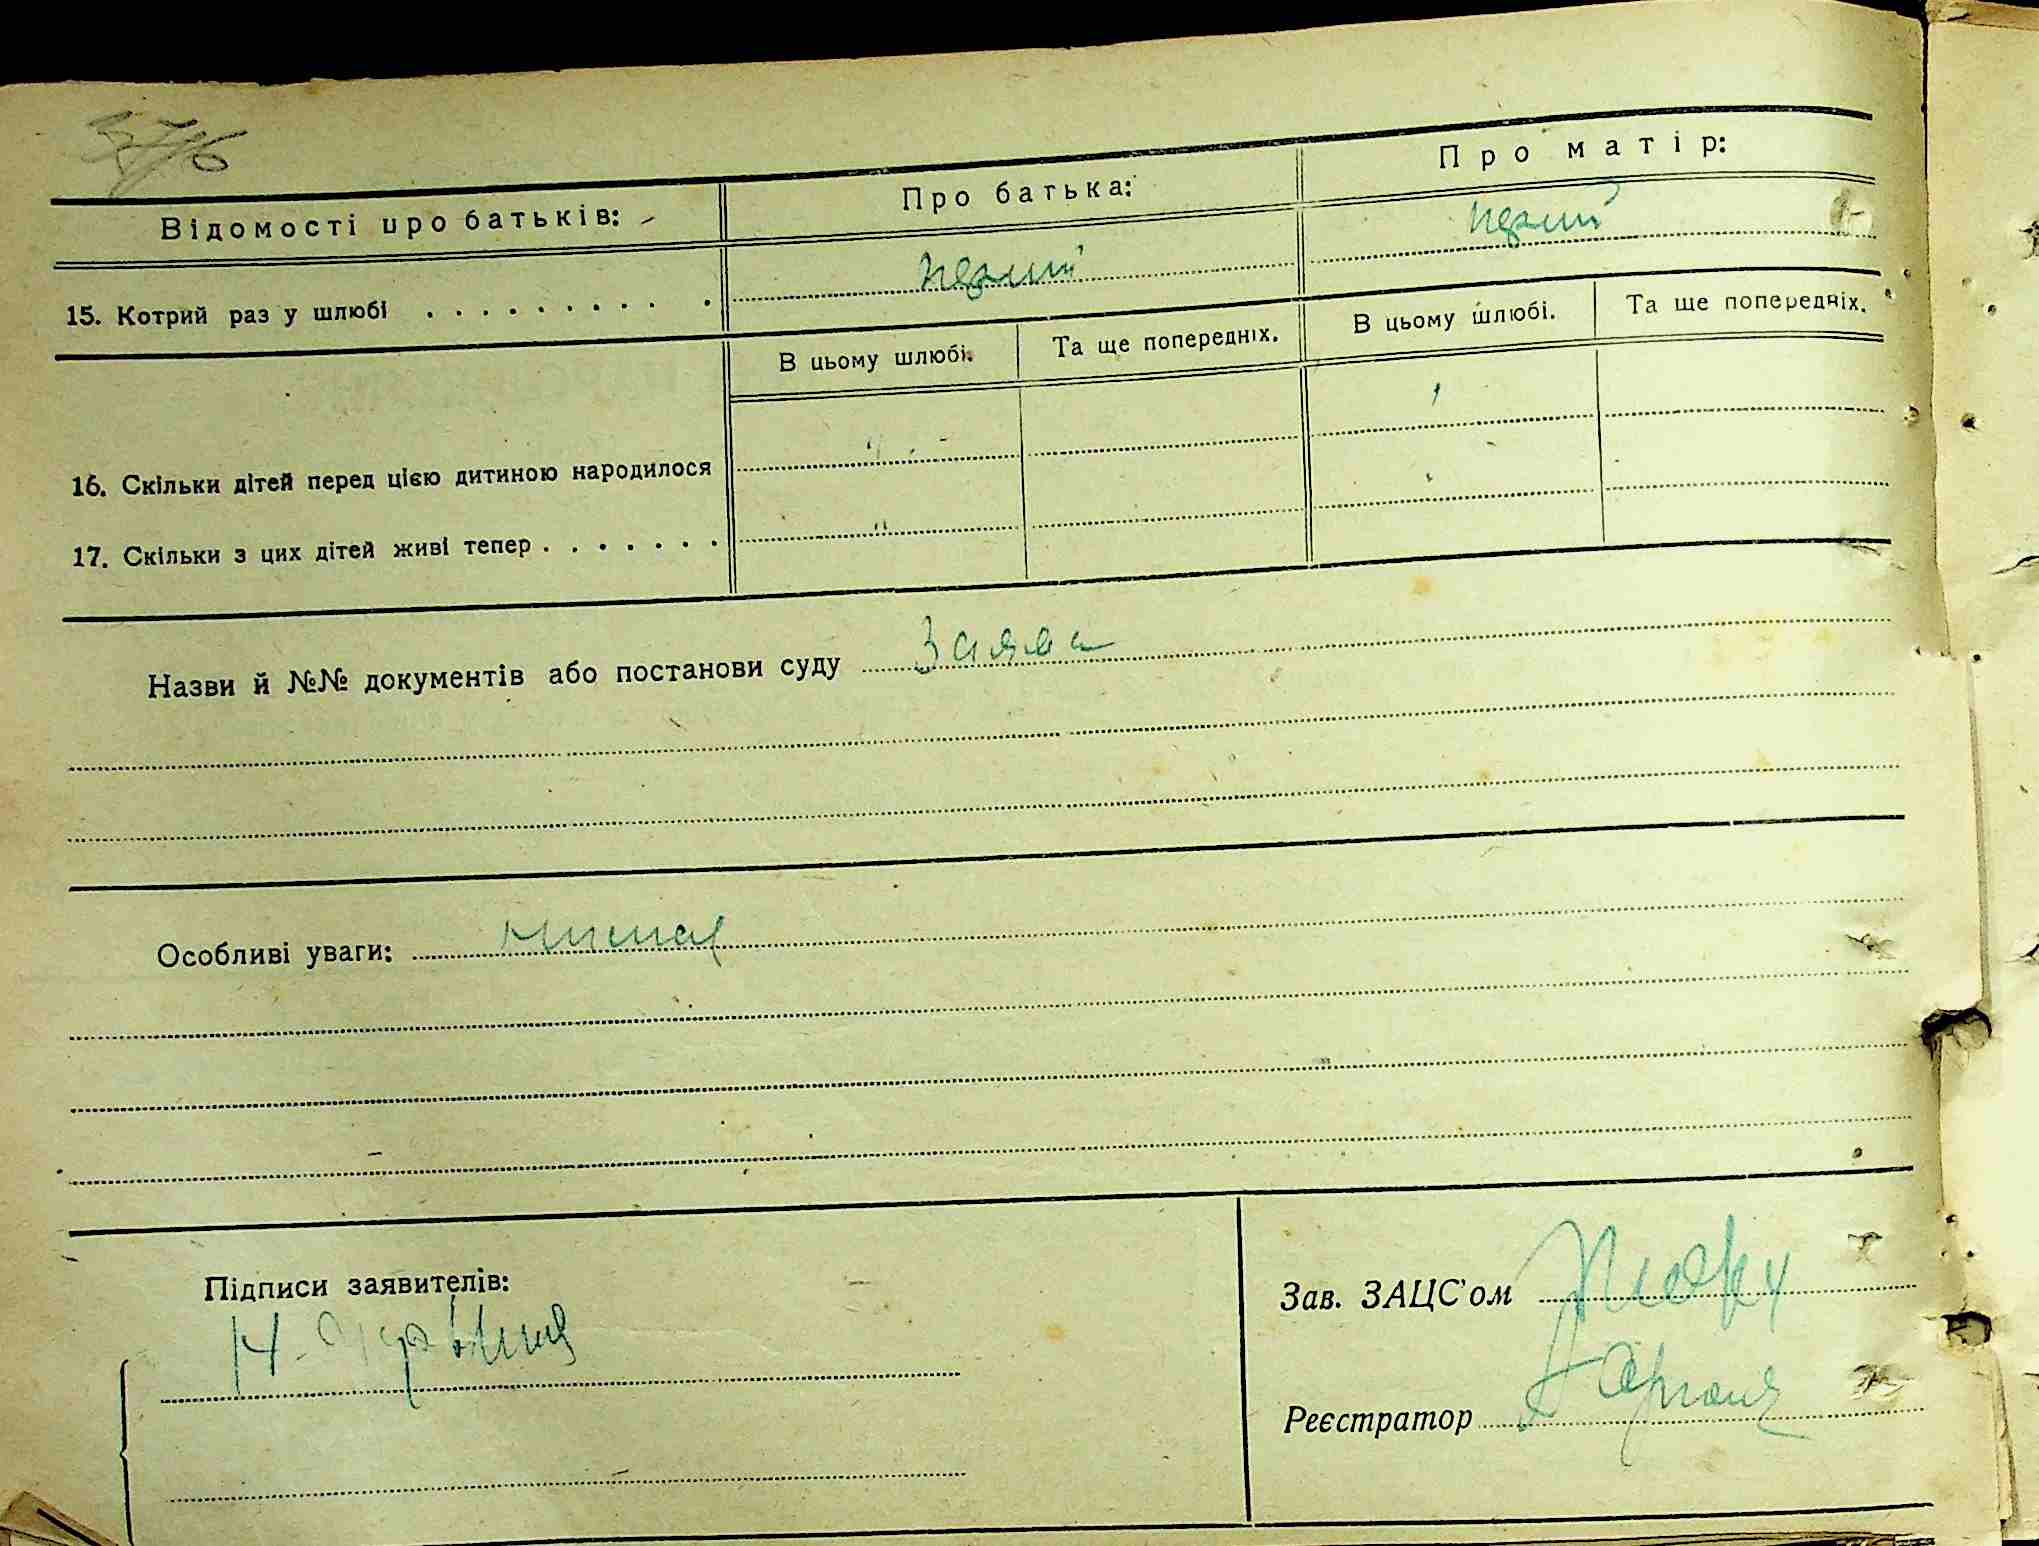 Відомості про батьків:
Про батька:
Про матір:
15. Котрий раз у шлюбі
перший
перший
В цьому шлюбі.
Та ще попередніх.
В цьому шлюбі.
Та ще попередніх.
16. Скільки дітей перед цією дитиною народилося
17. Скільки з цих дітей живі тепер
Назви й №№ документів або постанови суду Заява
Особливі уваги: немає
Підписи заявителів:
Зав. ЗАЦС'ом
Реєстратор